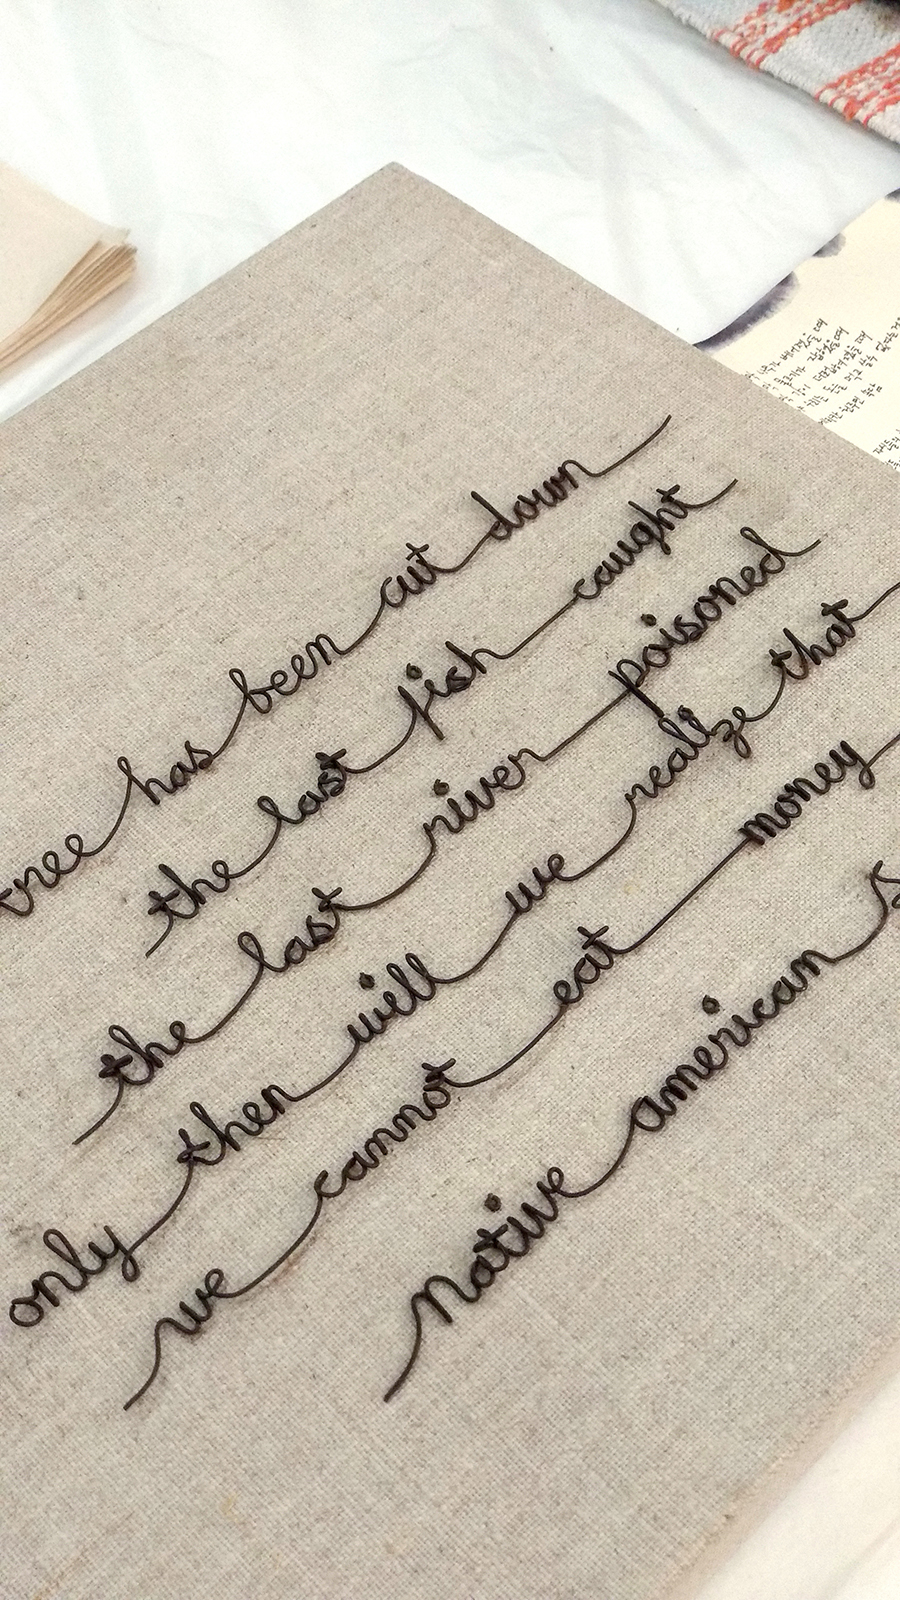 tree has been cut down
the last fish caught
the last river poisoned
only then will we realize that
we cannot eat money
Native american s